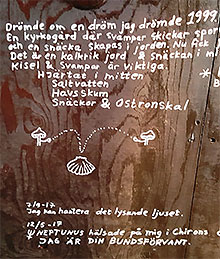 Drömde om en dröm jag drömde 1999.
En kyrkogård där svampar skickar spor
och en snäcka skapas i jorden. Nu fick
Det är en kalkrik jord & snäckan i mi
Kisel & svampar är viktiga.
Hjärtat i mitten *B
Saltvatten
Havsskum
Snäckor & Ostronskal
7/9-17
Jag kan hantera det lysande ljuset.
12/5-17
Ψ NEPTUNUS hälsade på mig i Chirons
* JAG ÄR DIN BUNDSFÖRVANT.